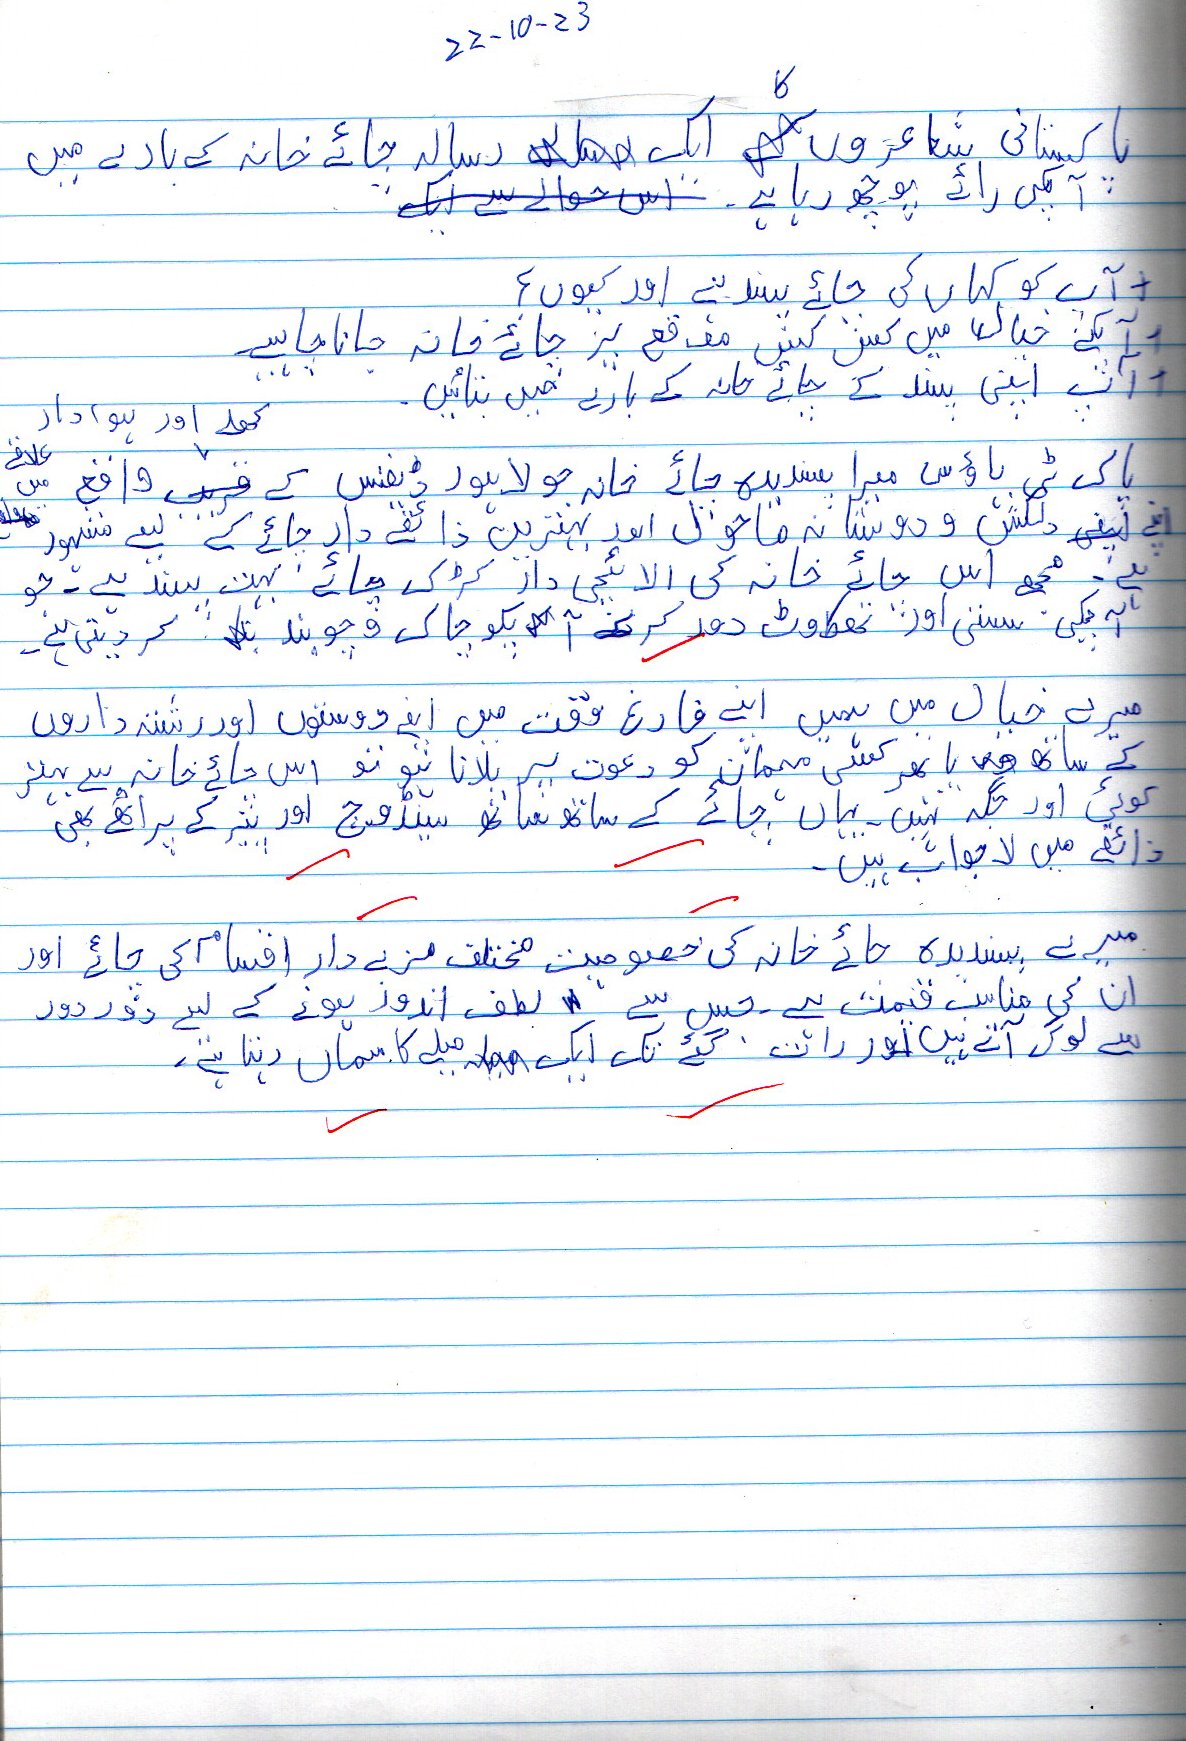 22-10-23
پاکیستانی شاعروں کا ایک رسالہ چائے خانہ کے بارے میں
آپکی رائے پوچھ رہا ہے۔ اس حوالے سے ایک
+ آپ کو کہاں کی چائے پسند ہے اور کیوں؟
+ آپکے خیال میں کس کس موقع پر چائے خانہ جانا چاہیے
+ آپ اپنی پسند کے چائے خانہ کے بارے میں بتائیں۔
کھلے اور ہوادار
پاک ٹی ہاؤس میرا پسندیدہ چائے خانہ جو لاہور ڈیفنس کے قریب واقع علاقے میں
اپنے دلکش و دوستانہ ماحول اور بہترین ذائقے دار چائے کے لیے مشہور
ہے۔ مجھے اس چائے خانہ کی الائچی دار کڑک چائے بہت پسند ہے۔ جو
آپکی سستی اور تھکاوٹ دور کرکے آپکو چاک و چوبند کر دیتی ہے۔
میرے خیال میں ہمیں اپنے فارغ وقت میں اپنے دوستوں اور رشتہ داروں
کے ساتھ یا پھر کسی مہمان کو دعوت پر بلانا ہو تو اس چائے خانہ سے بہتر
کوئی اور جگہ نہیں۔ یہاں چائے کے ساتھ ساتھ سینڈوچ اور پنیر کے پراٹھے بھی
ذائقے میں لاجواب ہیں۔
میرے پسندیدہ چائے خانہ کی خصوصیت مختلف مزے دار اقسام کی چائے اور
ان کی مناسب قیمت ہے۔ جس سے لطف اندوز ہونے کے لیے دور دور
سے لوگ آتے ہیں اور رات گئے تک ایک میلے کا سماں رہتا ہے۔